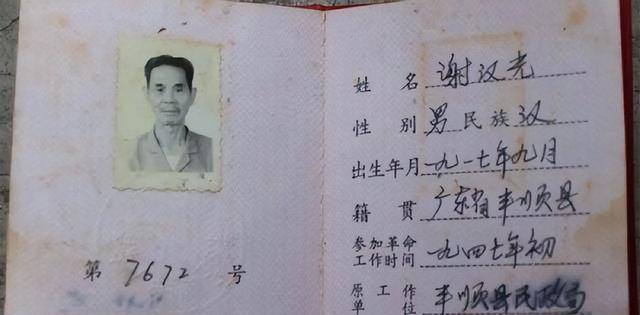 第 7672 号
姓 名 谢汉光
性 别 男 民 族 汉
出生年月 一九一七年九月
籍 贯 广东省丰顺县
参加革命工作时间 一九四七年初
原工作单位 丰顺县民政局